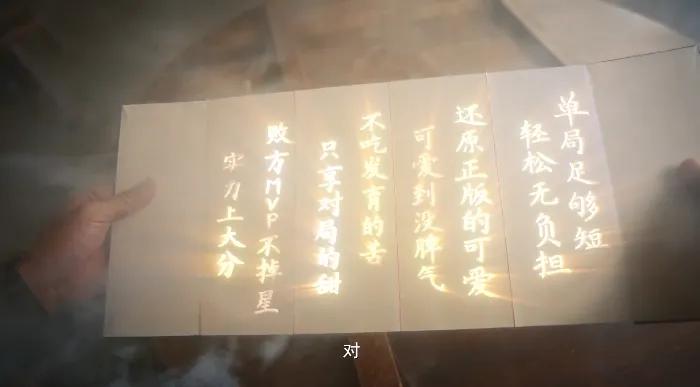 单局足够短
轻松无负担
还原正版的可爱
可爱到没脾气
不吃发育的苦
只享对局的甜
败方MVP不掉星
实力上大分
对